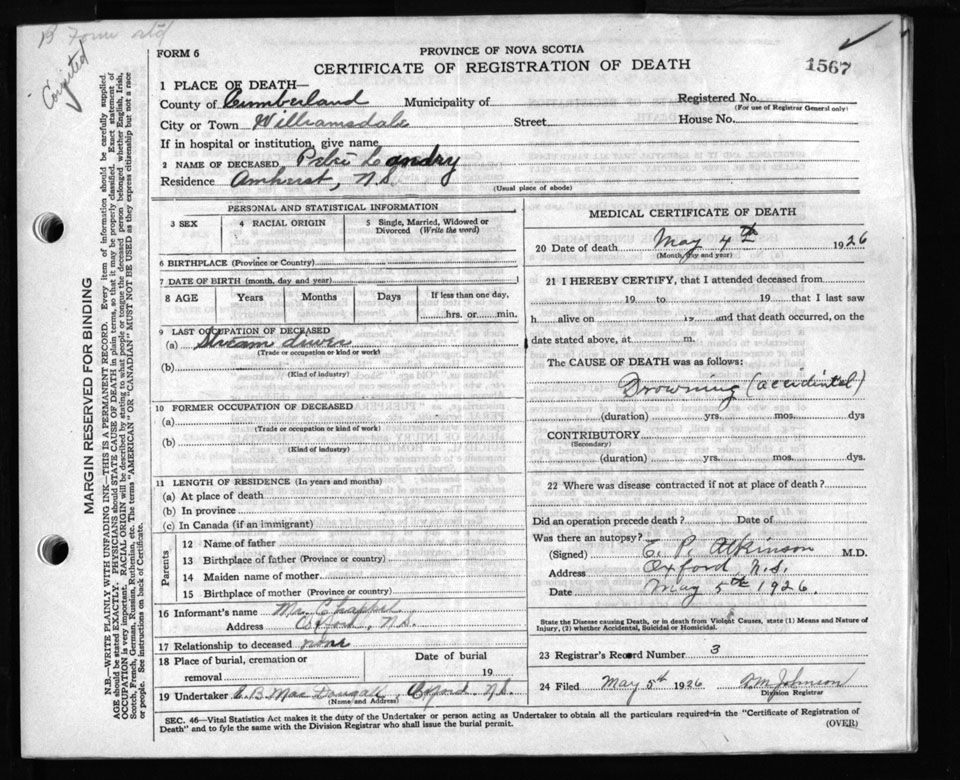 B Form std
Corrected
1567
FORM 6
PROVINCE OF NOVA SCOTIA
CERTIFICATE OF REGISTRATION OF DEATH
1 PLACE OF DEATH—
County of Cumberland Municipality of Registered No.
(For use of Registrar General only)
City or Town Williamsdale Street House No.
If in hospital or institution, give name
2 NAME OF DECEASED Landry
Residence Amherst, N.S.
(Usual place of abode)
PERSONAL AND STATISTICAL INFORMATION
3 SEX 4 RACIAL ORIGIN 5 Single, Married, Widowed or Divorced (Write the word)
6 BIRTHPLACE (Province or Country)
7 DATE OF BIRTH (month, day and year)
8 AGE Years Months Days If less than one day,
hrs. or min.
9 LAST OCCUPATION OF DECEASED
(a) Stream driver
(Trade or occupation or kind or work)
(b)
(Kind of industry)
10 FORMER OCCUPATION OF DECEASED
(a)
(Trade or occupation or kind of work)
(b)
(Kind of industry)
11 LENGTH OF RESIDENCE (In years and months)
(a) At place of death
(b) In province
(c) In Canada (if an immigrant)
Parents
12 Name of father
13 Birthplace of father (Province or country)
14 Maiden name of mother
15 Birthplace of mother (Province or country)
16 Informant's name Mr. Chappel
Address Oxford, N.S.
17 Relationship to deceased none
18 Place of burial, cremation or removal Date of burial
19
19 Undertaker C. B. MacDougall, Oxford N.S.
(Name and Address)
MEDICAL CERTIFICATE OF DEATH
20 Date of death May 4th 1926
(Month, day and year)
21 I HEREBY CERTIFY, that I attended deceased from
19 to 19 that I last saw
h alive on 19 and that death occurred, on the
date stated above, at m.
The CAUSE OF DEATH was as follows:
Drowning (accidental)
(duration) yrs. mos. dys
CONTRIBUTORY
(Secondary)
(duration) yrs. mos. dys.
22 Where was disease contracted if not at place of death?
Did an operation precede death? Date of
Was there an autopsy?
(Signed) E. P. Atkinson M.D.
Address Oxford, N.S.
Date May 5th 1926.
State the Disease causing Death, or in death from Violent Causes, state (1) Means and Nature of
Injury, (2) whether Accidental, Suicidal or Homicidal.
23 Registrar's Record Number 3
24 Filed May 5th 1926 Johnson
Division Registrar
SEC. 46—Vital Statistics Act makes it the duty of the Undertaker or person acting as Undertaker to obtain all the particulars required in the "Certificate of Registration of
Death" and to fyle the same with the Division Registrar who shall issue the burial permit.
(OVER)
MARGIN RESERVED FOR BINDING
N.B.—WRITE PLAINLY WITH UNFADING INK—THIS IS A PERMANENT RECORD. Every item of information should be carefully supplied.
AGE should be stated EXACTLY. PHYSICIANS should STATE CAUSE OF DEATH in plain terms, so that it may be properly classified. Exact statement of
OCCUPATION is very important. RACIAL ORIGIN will be described by stating to what people or tongue the deceased person belonged whether English, Irish,
Scotch, French, German, Russian, Ruthenian, etc. The terms "AMERICAN" OR "CANADIAN" MUST NOT BE USED as they express citizenship but not a race
or people. See instructions on back of Certificate.